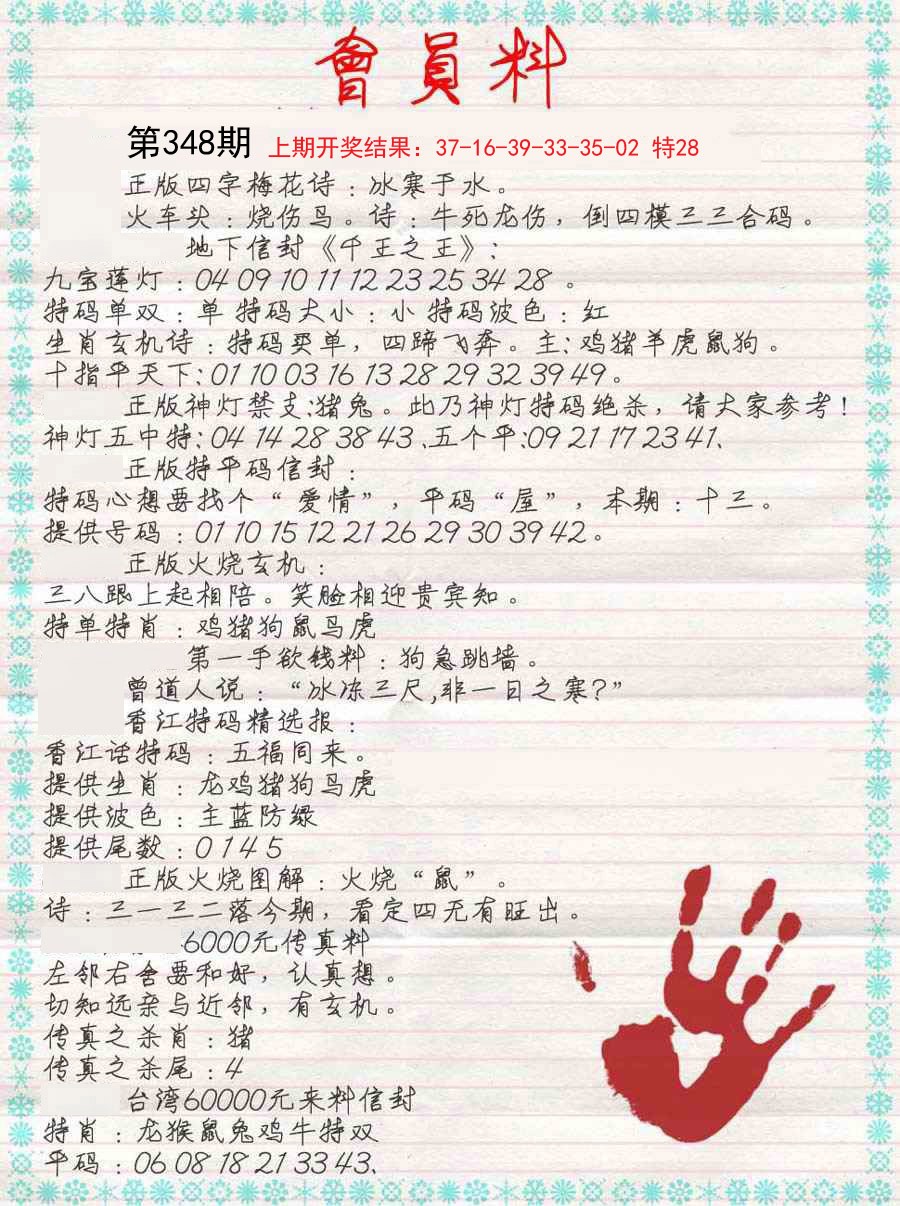 會員料
第348期 上期开奖结果：37-16-39-33-35-02 特28
正版四字梅花诗：冰寒于水。
火车头：烧伤鸟。诗：牛死龙伤，倒四模三三合码。
地下信封《千王之王》：
九宝莲灯：04 09 10 11 12 23 25 34 28 。
特码单双：单 特码大小：小 特码波色：红
生肖玄机诗：特码买单，四蹄飞奔。主：鸡猪羊虎鼠狗。
十指平天下：01 10 03 16 13 28 29 32 39 49。
正版神灯禁支：猪兔。此乃神灯特码绝杀，请大家参考！
神灯五中特：04 14 28 38 43、五个平：09 21 17 23 41、
正版特平码信封：
特码心想要找个“爱情”，平码“屋”，本期：十三。
提供号码：01 10 15 12 21 26 29 30 39 42。
正版火烧玄机：
三八跟上起相陪。笑脸相迎贵宾知。
特单特肖：鸡猪狗鼠马虎
第一手欲钱料：狗急跳墙。
曾道人说：“冰冻三尺,非一日之寒?”
香江特码精选报：
香江话特码：五福同来。
提供生肖：龙鸡猪狗马虎
提供波色：主蓝防绿
提供尾数：0 1 4 5
正版火烧图解：火烧“鼠”。
诗：三一三二落今期，看定四无有旺出。
6000元传真料
左邻右舍要和好，认真想。
切知远亲与近邻，有玄机。
传真之杀肖：猪
传真之杀尾：4
台湾60000元来料信封
特肖：龙猴鼠兔鸡牛特双
平码：06 08 18 21 33 43、